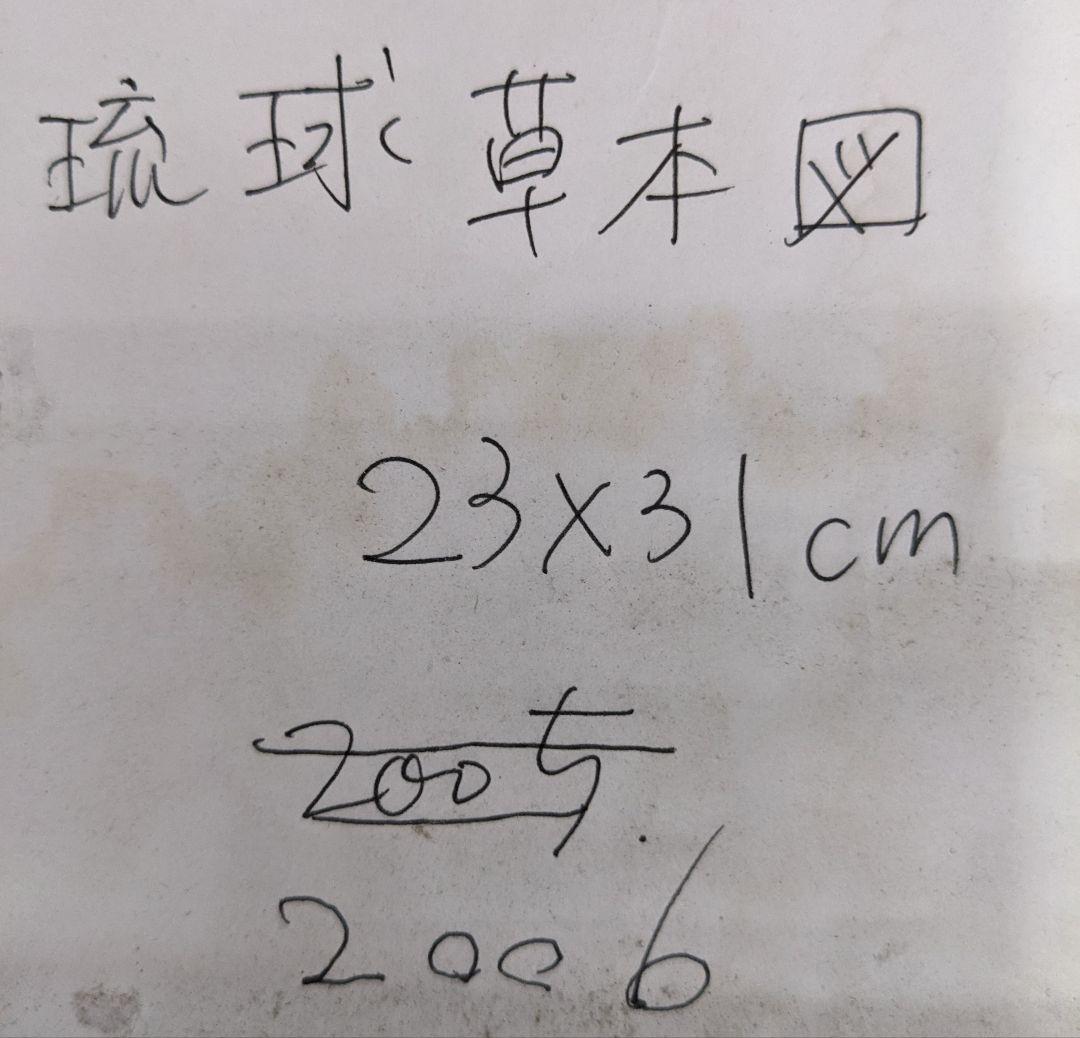 琉球草本図
23×31cm
2005.
2006